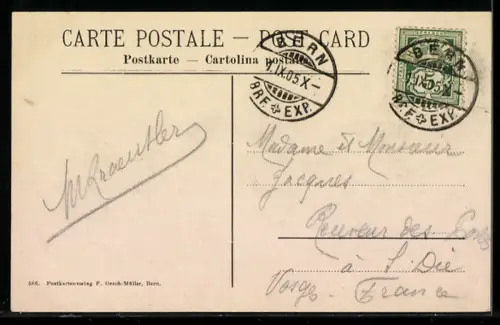 CARTE POSTALE — POST CARD
Postkarte — Cartolina postale
BERN
1.IX.05.X-
BRF. EXP.
BERN
IX.05
BRF. EXP.
5
Madame et Monsieur
Jacques
Receveur des
à S. Dié
Vosges France
Postkartenverlag F. Gesch-Müller, Bern.